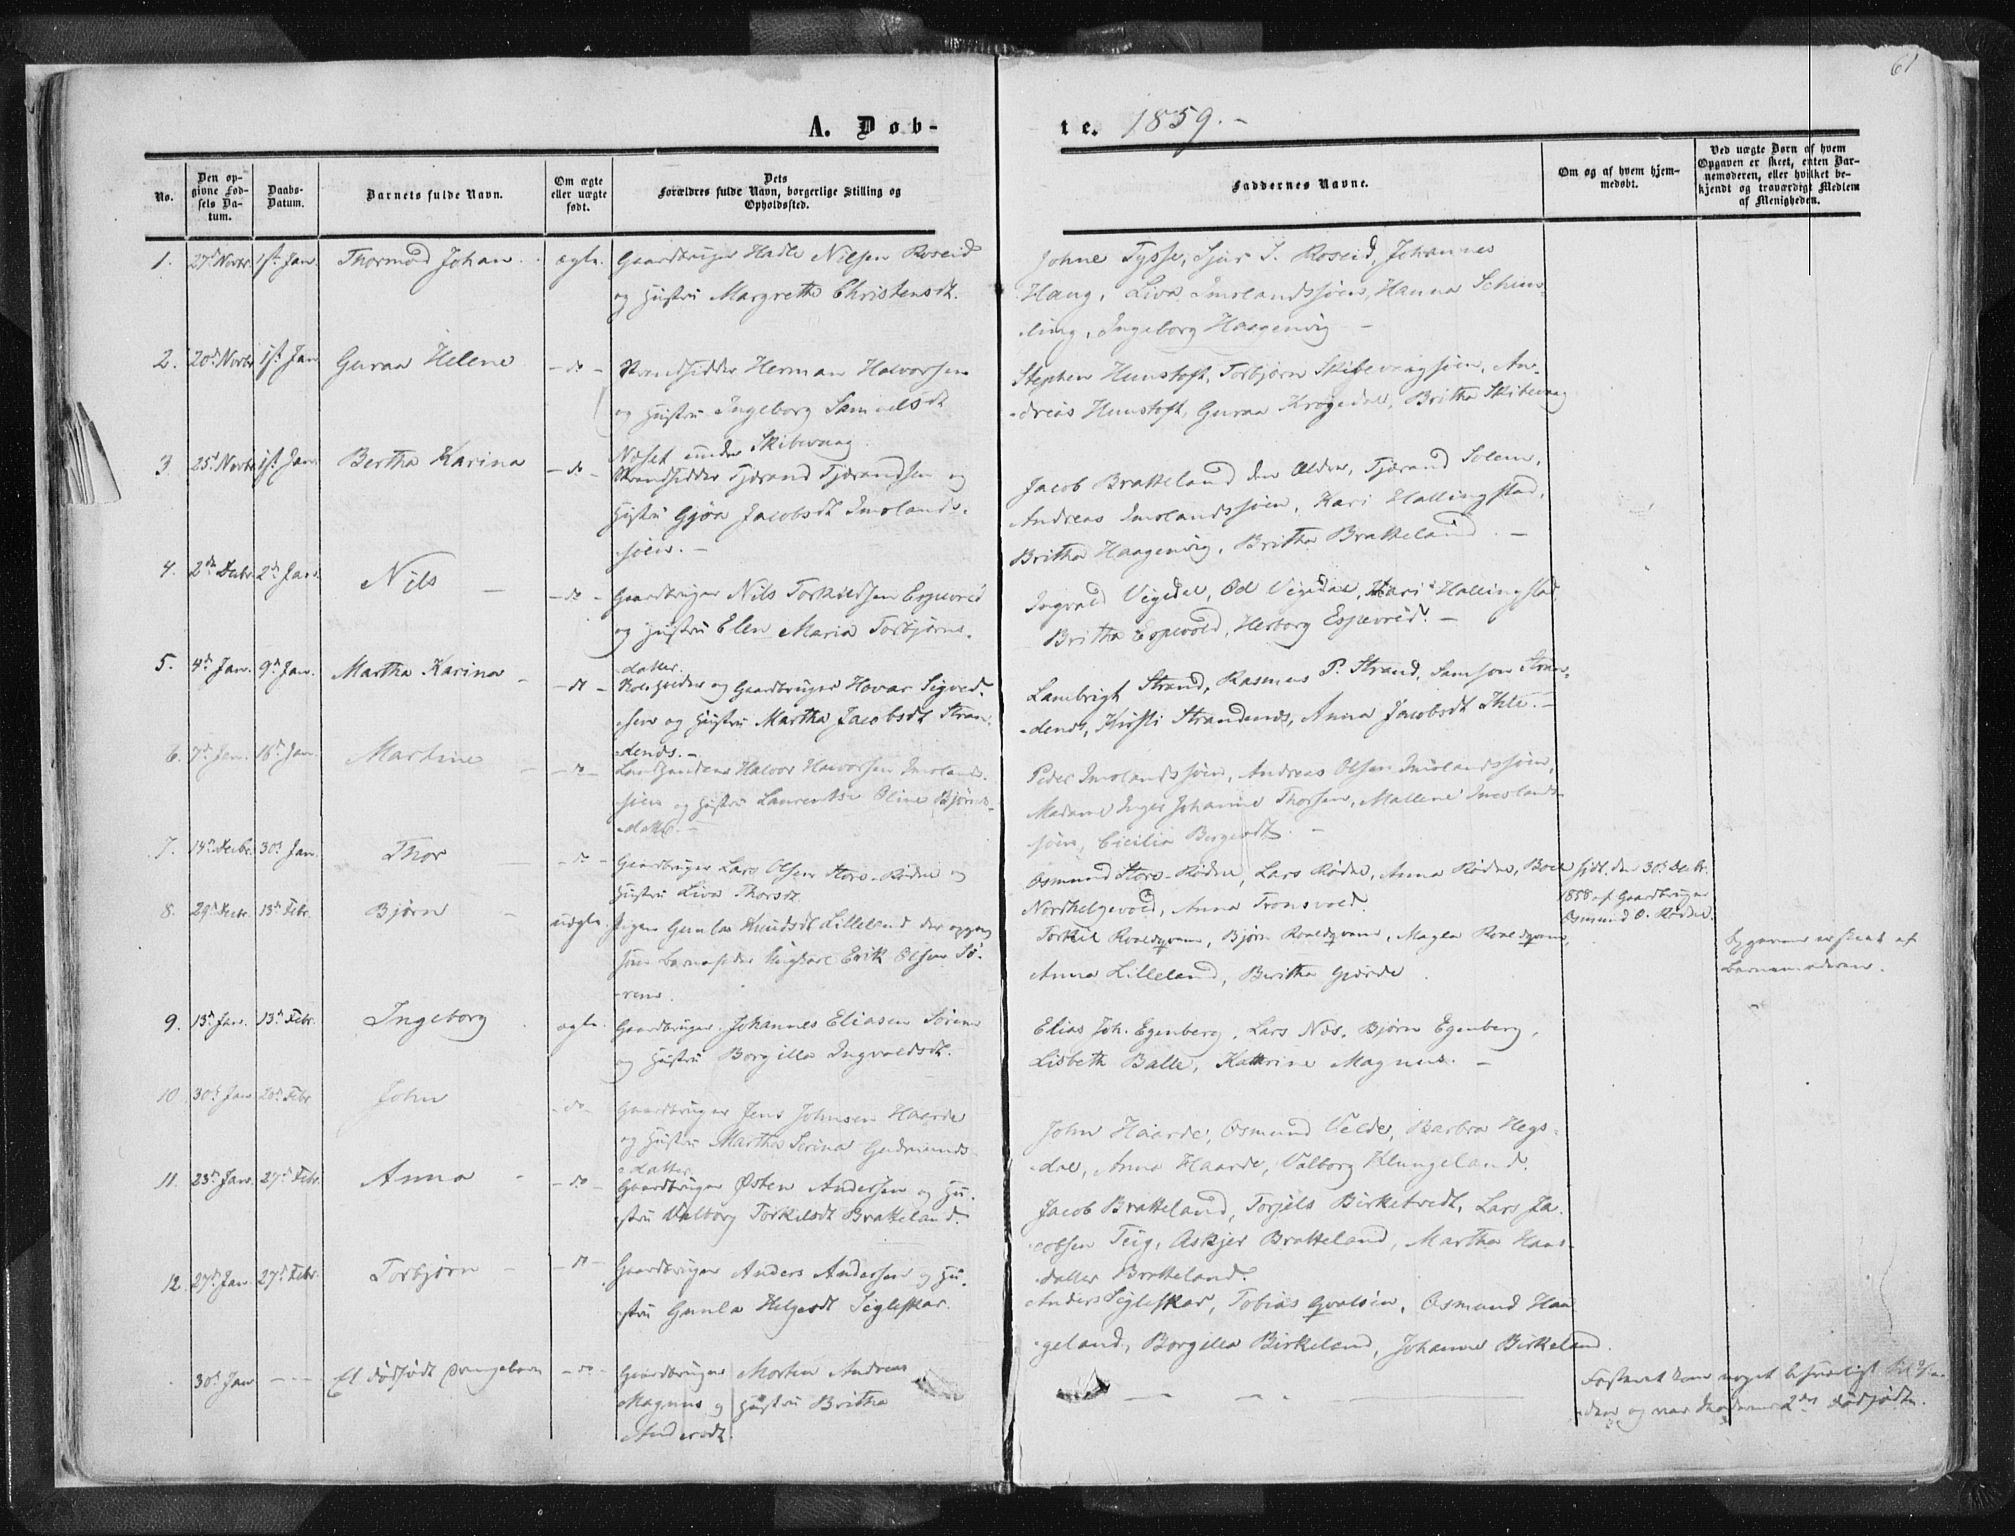 61
A. Døb-
te. 1859.-
No.
Den opgivne Fødsels Datum.
Daabs-Datum.
Barnets fulde Navn.
Om ægte eller uægte født.
Dets Forældres fulde Navn, borgerlige Stilling og Opholdssted.
Faddernes Navne.
Om og af hvem hjemmedøbt.
Ved uægte Børn af hvem Opgaven er skeet, enten Barnemoderen, eller hvilket bekjendt og troværdigt Medlem af Menigheden.
1. 27d Novbr. 1ste Jan. Thormod Johan. ægte. Gaardbruger Hadle Nilsen Roseid
og Hustru Margrethe Christensdt.
Johne Tysse, Sjur S. Roseid, Johannes
Haug, Liva Imslandssjøen, Hanna
Ingeborg Haagenvig -
2. 20d Novbr 1ste Jan Guraa Helene - do - Strandsidder Herman Halvorsen
og Hustru Ingeborg Samuelsdt
Næset under Skibevaag.
Stephen Hunstoft, Torbjørn Skibevaagsjøen, An-
dreas Hunstoft, Guraa Krogedal, Britha Skibevaag
3. 25d Novbr 1ste Jan. Bertha Karina - do - Strandsidder Tjærand Tjærandsen og
Hustru Gjøa Jacobsdt Imslands-
sjøen. -
Jacob Bratteland den Ældre, Tjærand Solem,
Andreas Imslandssjøen, Kari Hallingstad,
Britha Haagenvig, Britha Bratteland. -
4. 2den Decbr. 2den Jan. Nils - - do - Gaardbruger Nils Torkildsen Espevold
og Hustru Elen Maria Torbjørns-
datter.
Ingvald Vigedal, Od Vigedal, Kari Hallingstad,
Britha Espevold, Herborg Espevold. -
5. 4de Jan. 9de Jan. Martha Karina - - do - og Gaardbruger Hovar Sigved-
sen og Hustru Martha Jacobsdt Stran-
dends. -
Lambrigt Strand, Rasmus P. Strand, Samson Stran-
dends, Kirsti Strandends, Anna Jacobsdt -
6. 7de Jan. 16de Jan. Martine - - do - Halvor Halvorsen Imslands-
sjøen og Hustru Laurentse Oline Bjørns-
datt. -
Peder Imslandssjøen, Andreas Olsen Imslandssjøen,
Madame Inger Johanne Thorsen, Mallene Imslands-
sjøen, Cicilia Bergesdt. -
7. 14de Decbr. 30d Jan. Thor - - do - Gaardbruger Lars Olsen Store-Rødne og
Hustru Liva Thorsdt.
Osmund Store-Rødne, Lars Rødne, Anna Rødne, Boel
Nordhelgevold, Anna Tronsvold.
hjdt. den 30d Decbr.
1858 af Gaardbruger
Osmund O. Rødne.
8. 29d Decbr. 13d Febr. Bjørn - uægte. Pigen Gunla Knudsdt Lilleland der opgav
som Barnefader Ungkarl Erik Olsen Sø-
rene.
Torkil Roaldqvam, Bjørn Roaldqvam, Magla Roaldqvam,
Anna Lilleland, Britha Gjerde.
Opgaven er skeet af
Barnemoderen.
9. 13d Jan. 13d Febr. Ingeborg ægte. Gaardbruger Johannes Eliasen Sørene
og Hustru Borgilla Ingvaldsdt.
Elias Joh. Egenberg, Lars Næs, Bjørn Egenberg,
Lisbeth Balle, Kathrine Magnus. -
10. 30d Jan 20d Febr John - do - Gaardbruger Jens Johnsen Haarde
og Hustru Martha Serina Gudmunds-
datter.
John Haarde, Osmund Velde, Barbra Hegs-
dal, Anna Haarde, Valborg Klungeland.
11. 23d Jan. 27d Febr. Anna - - do - Gaardbruger Østen Andersen og Hu-
stru Valborg Torkelsdt Bratteland.
Jacob Bratteland, Torjels Birketvedt, Lars Ja-
cobsen Teig, Askjer Bratteland, Martha Hans-
datter Bratteland.
12. 27d Jan. 27d Febr. Torbjørn - - do - Gaardbruger Anders Andersen og Hu-
stru Gunla Helgesdt Legleskar.
Anders Legleskar, Tobias Qvalsin, Osmund Haa-
geland, Borgilla Birkeland, Johanne Birkeland.
30d Jan - - - Et dødfødt Drengebarn - do - Gaardbruger Morten Andreas
Magnus og Hustru Britha
Andersdt.
Fosteret kom noget
og var Moderens 2det dødfødte.